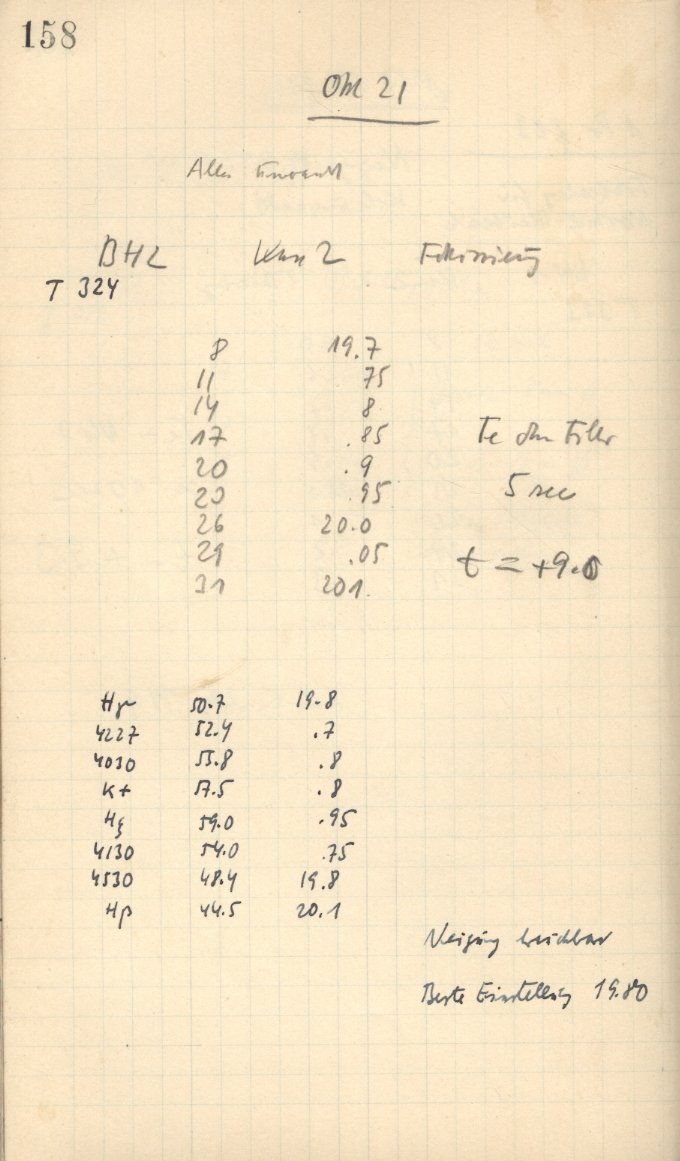 158
Okt 21
Alles
BHL Kam 2 Fokussierung
T 324
8 19.7
11 75
14 8
17 .85
20 .9
23 .95
26 20.0
29 .05
31 201.
Te ohne Filter
5 sec
t = +9.0
Hγ 50.7 19.8
4227 52.4 .7
4030 55.8 .8
K+ 57.5 .8
Hζ 59.0 .95
4130 54.0 .75
4530 48.4 19.8
Hβ 44.5 20.1
Neigung brauchbar
Beste Einstellung 19.80